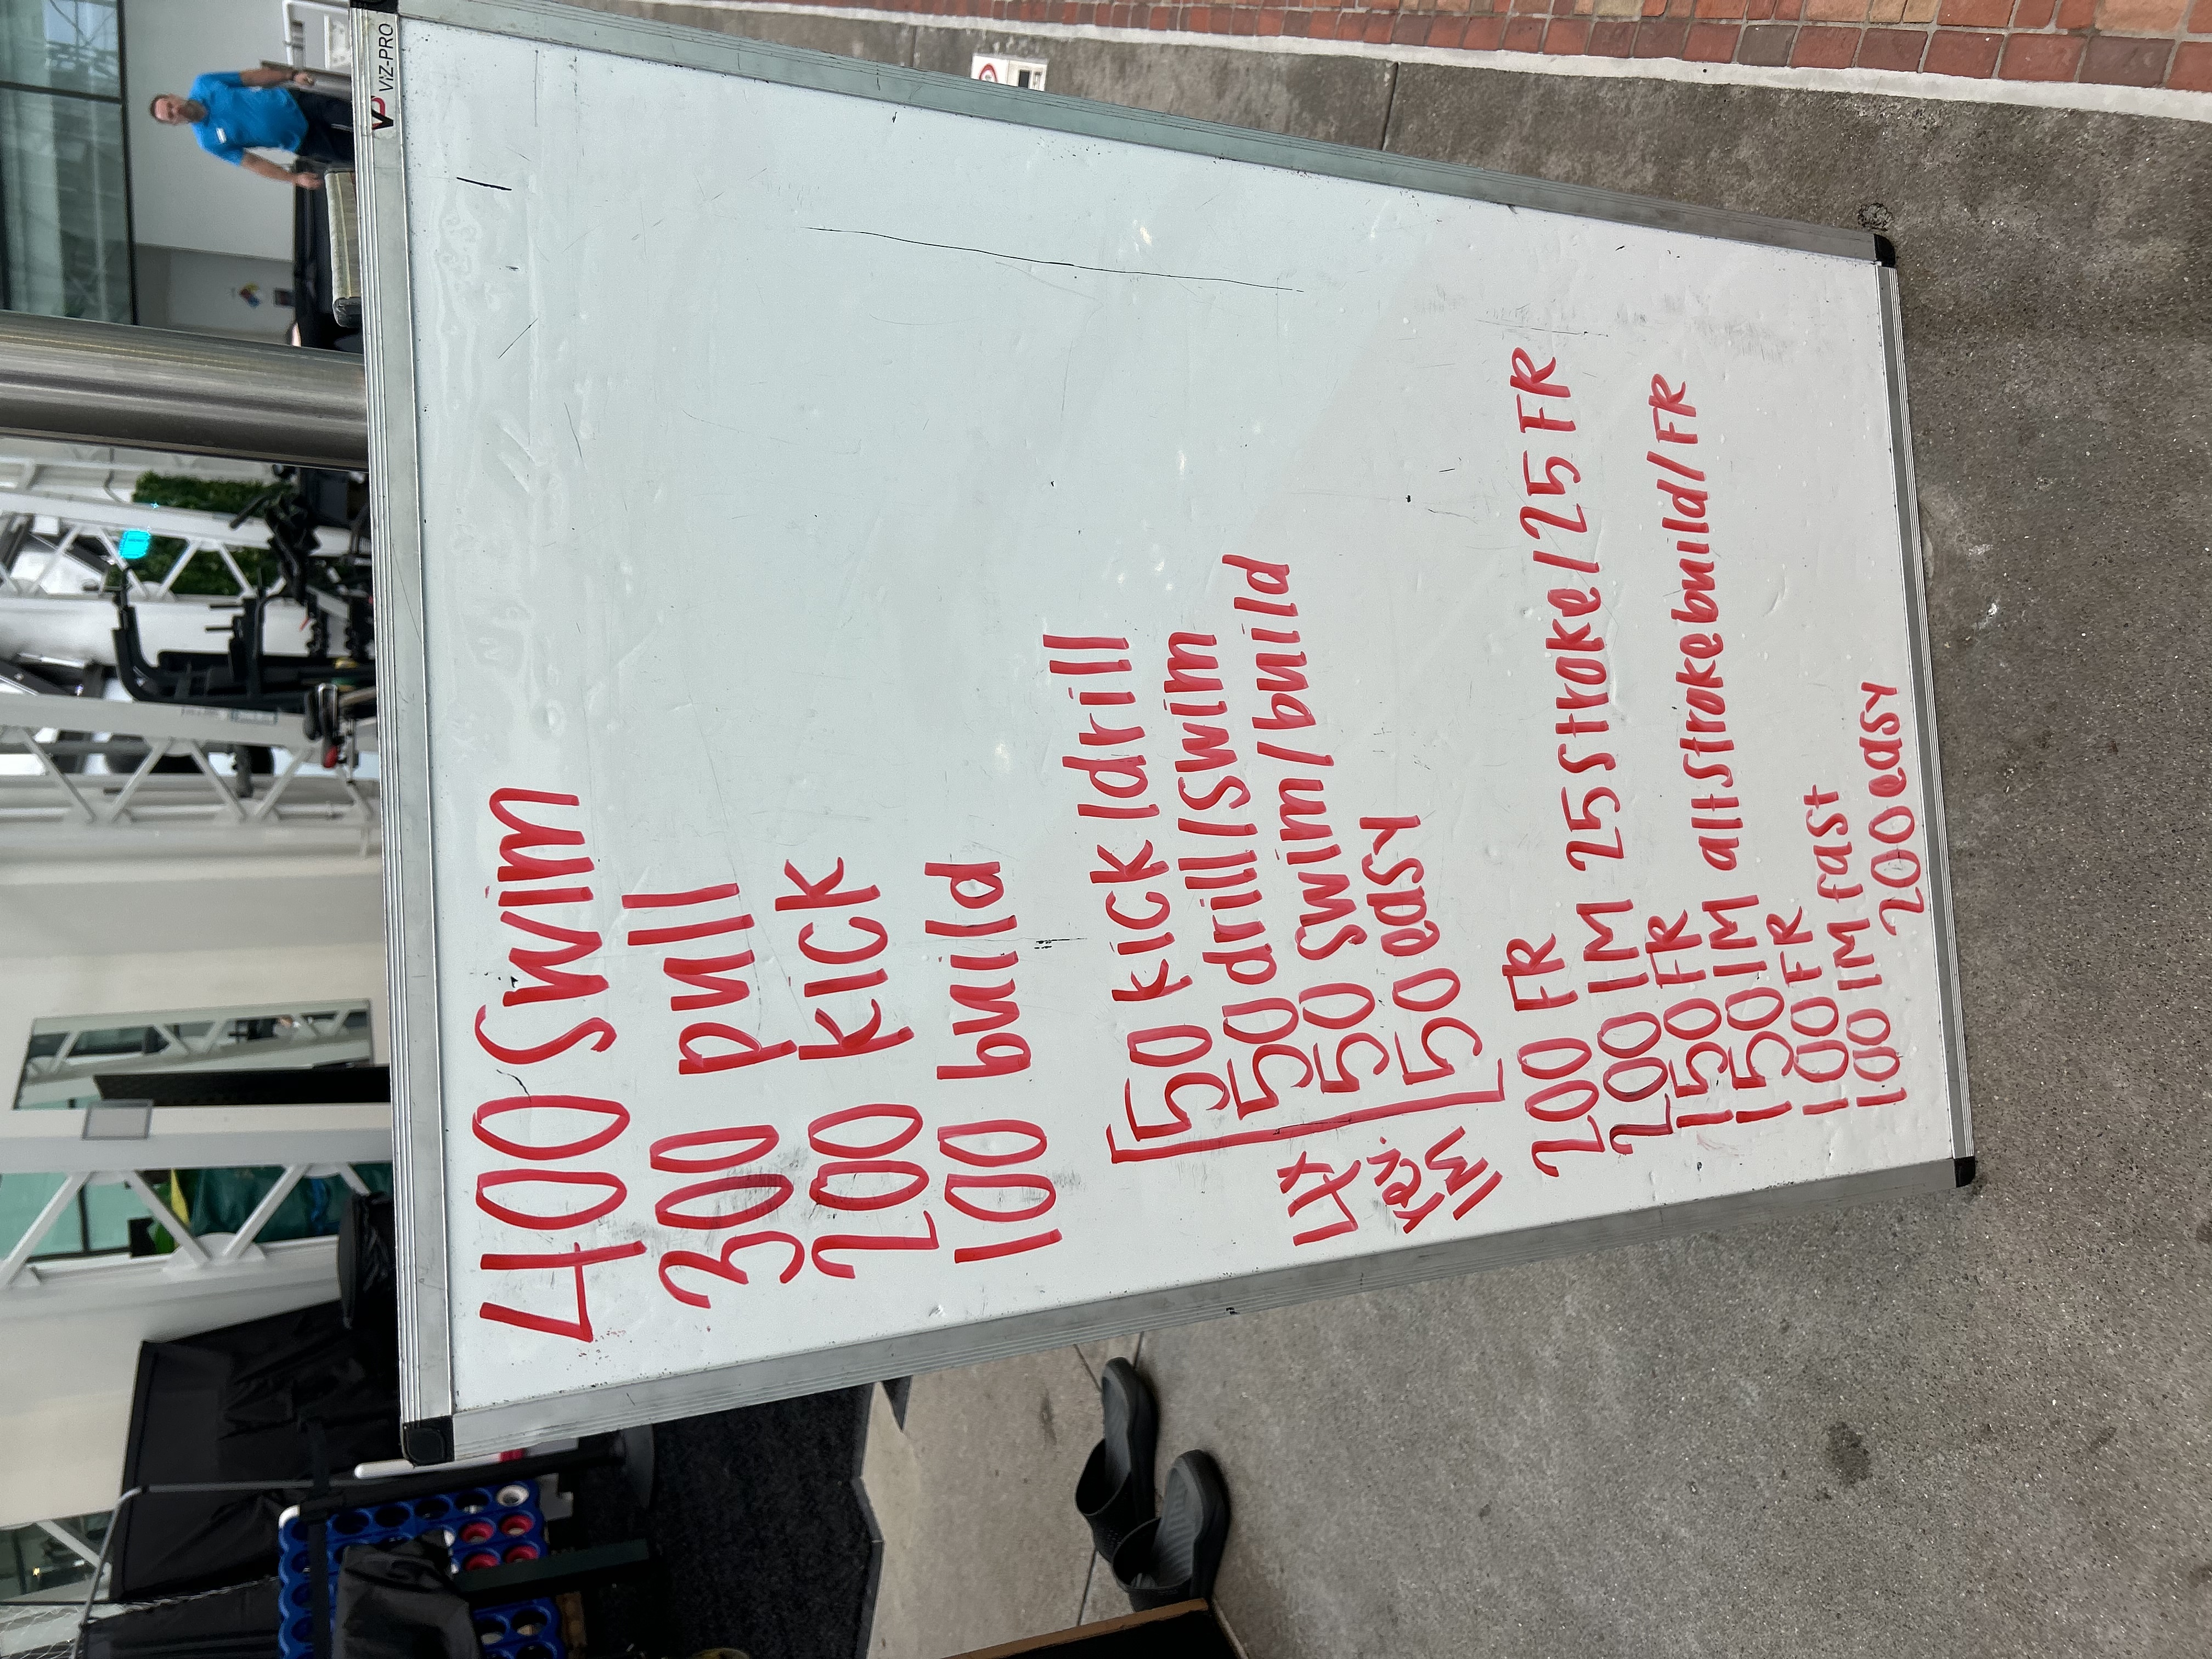 VIZ-PRO
400 Swim
300 pull
200 kick
100 build
50 kick/drill
50 drill/swim
4x 50 swim/build
Rev. IM 50 easy
200 FR
200 IM 25 stroke/25 FR
150 FR
150 IM alt stroke build/FR
100 FR
100 IM fast
200 easy